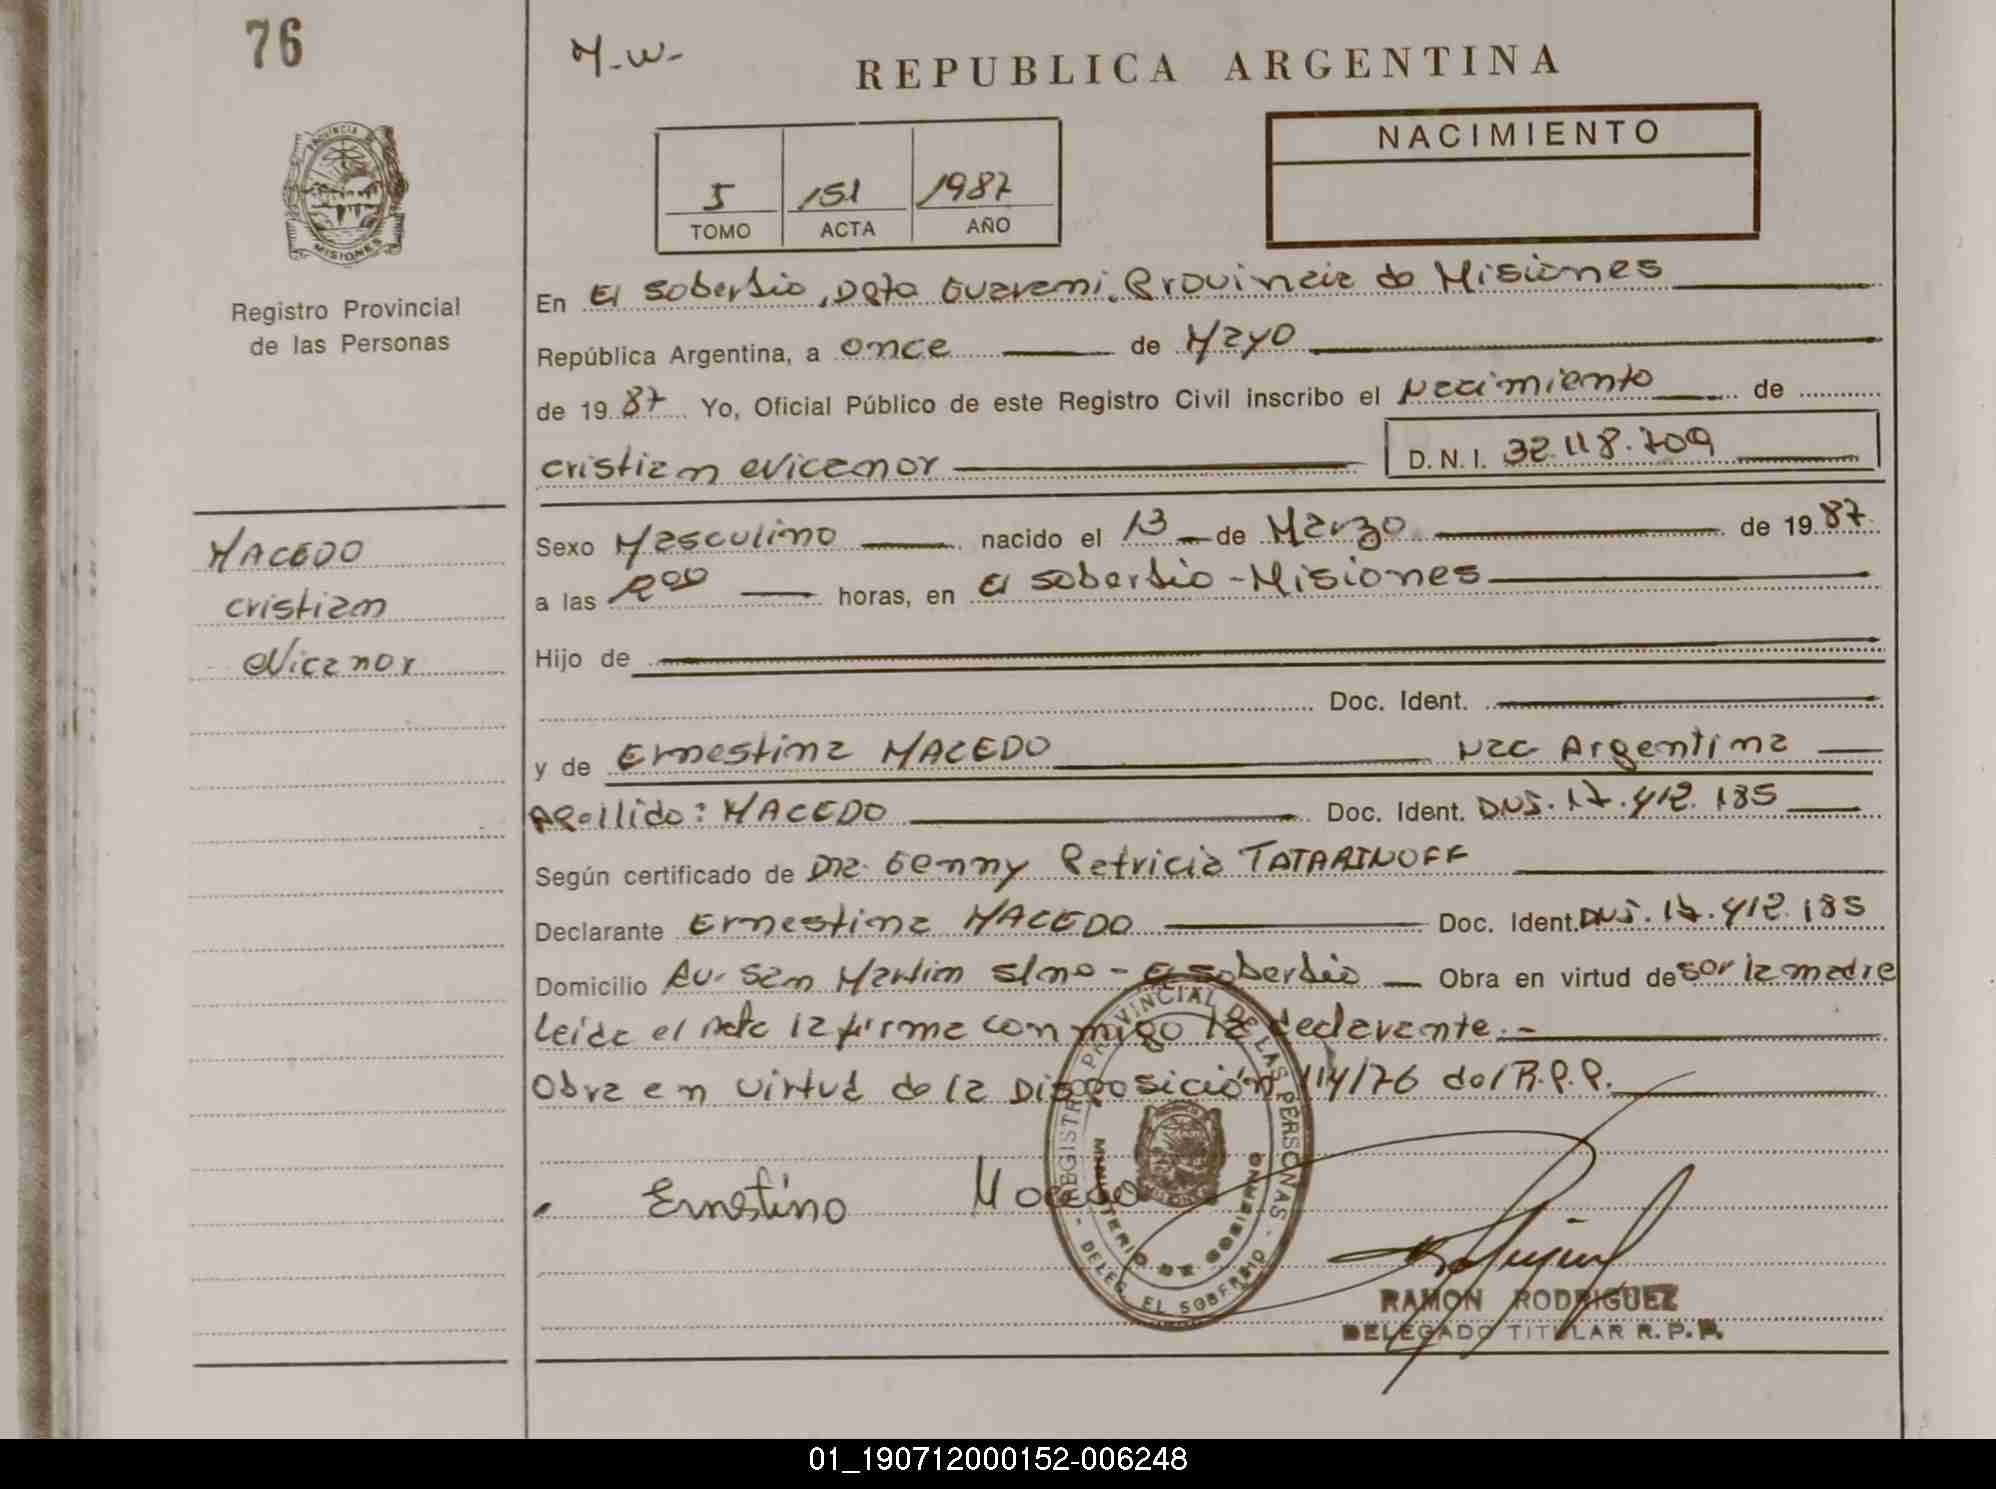 76
M-W-
REPUBLICA ARGENTINA
NACIMIENTO
5 151 1987
TOMO ACTA AÑO
PROVINCIA DE MISIONES
Registro Provincial
de las Personas
En El Soberbio, Dpto Guarani, Provincia de Misiones
República Argentina, a once de Mayo
de 1987 Yo, Oficial Público de este Registro Civil inscribo el Nacimiento de
cristian Nicanor D.N.I. 32.118.709
MACEDO
cristian
Nicanor
Sexo Masculino nacido el 13 de Marzo de 1987
a las 200 horas, en El Soberbio - Misiones
Hijo de
Doc. Ident.
y de Ernestina MACEDO Nac Argentina
Apellido: MACEDO Doc. Ident. DNI. 17.412.185
Según certificado de Dra. Genny Patricia TATARINOFF
Declarante Ernestina MACEDO Doc. Ident. DNI. 17.412.185
Domicilio Av. San Martin s/no - El Soberbio Obra en virtud de ser la madre
Leida el Acta la firma conmigo la declarante.-
Obra en virtud de la Disposición 114/76 del R.P.P.
Ernestino Macedo
REGISTRO PROVINCIAL DE LAS PERSONAS
MINISTERIO DE GOBIERNO
DELEG. EL SOBERBIO
RAMON RODRIGUEZ
DELEGADO TITULAR R.P.P.
01_190712000152-006248